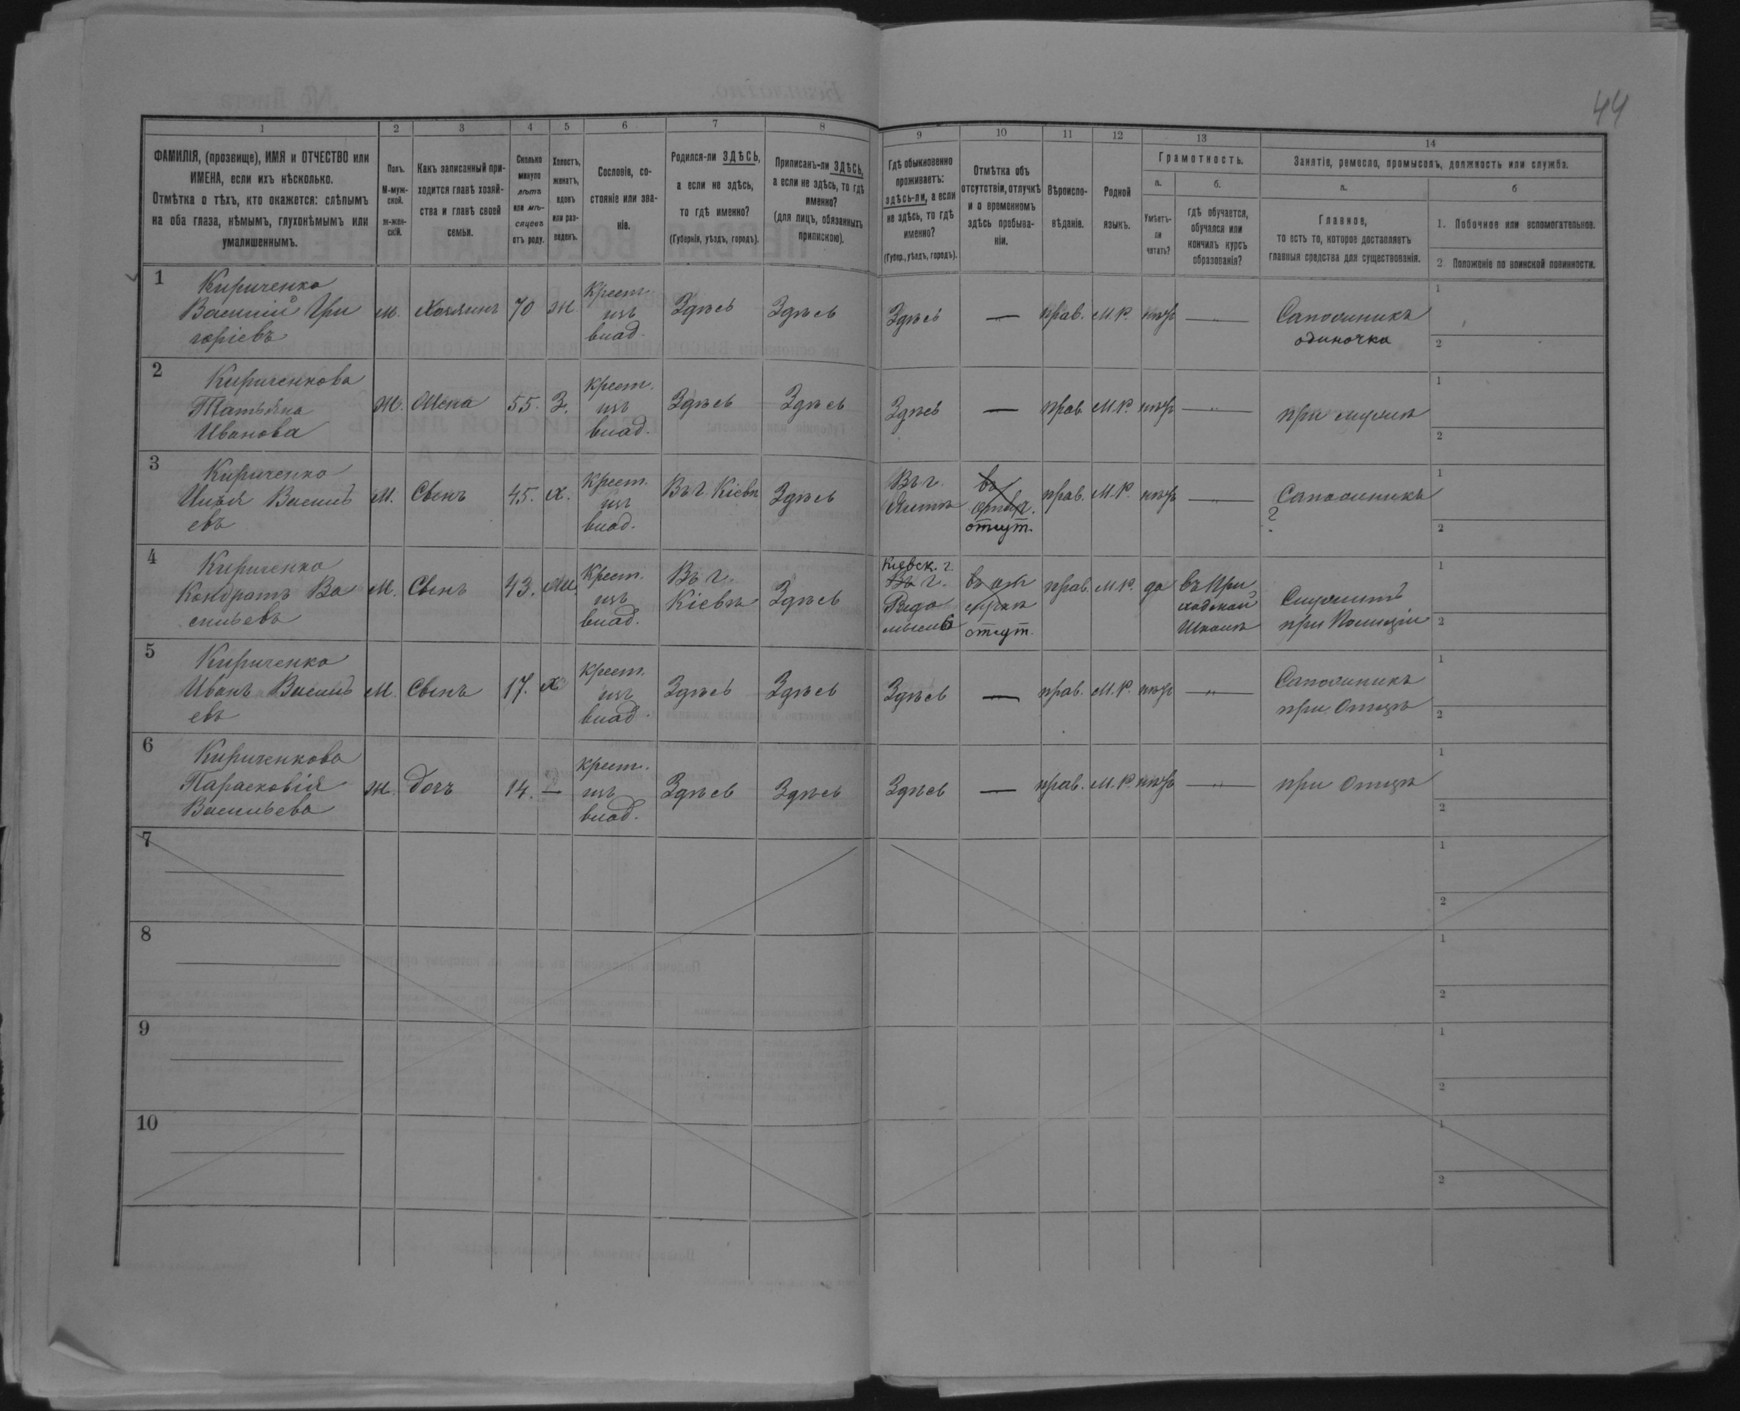 44
1 2 3 4 5 6 7 8 9 10 11 12 13 14
ФАМИЛІЯ, (прозвище), ИМЯ и ОТЧЕСТВО или
ИМЕНА, если ихъ нѣсколько.
Отмѣтка о тѣхъ, кто окажется: слѣпымъ
на оба глаза, нѣмымъ, глухонѣмымъ или
умалишеннымъ.
Полъ.
М-муж-
ской.
ж-жен-
скій.
Какъ записанный при-
ходится главѣ хозяй-
ства и главѣ своей
семьи.
Сколько
минуло
лѣтъ
или мѣ-
сяцевъ
отъ роду.
Холостъ,
женатъ,
вдовъ
или раз-
веденъ.
Сословіе, со-
стояніе или зва-
ніе.
Родился-ли ЗДѢСЬ,
а если не здѣсь,
то гдѣ именно?
(Губернія, уѣздъ, городъ).
Приписанъ-ли ЗДѢСЬ,
а если не здѣсь, то гдѣ
именно?
(для лицъ, обязанныхъ
припискою).
Гдѣ обыкновенно
проживаетъ:
здѣсь-ли, а если
не здѣсь, то гдѣ
именно?
(Губер., уѣздъ, городъ).
Отмѣтка объ
отсутствіи, отлучкѣ
и о временномъ
здѣсь пребыва-
ніи.
Вѣроиспо-
вѣданіе.
Родной
языкъ.
Грамотность.
а.
Умѣетъ-
ли
читать?
б.
гдѣ обучается,
обучался или
кончилъ курсъ
образованія?
Занятіе, ремесло, промыселъ, должность или служба.
а.
Главное,
то есть то, которое доставляетъ
главныя средства для существованія.
б
1. Побочное или вспомогательное.
2 Положеніе по воинской повинности.
1
Кириченко
Василій Гри
горіевъ
м. Хозяинъ 70 ж
Крест.
изъ
влад.
Здѣсь Здѣсь Здѣсь — прав. М.Р. нѣтъ —
Сапожникъ
одиночка
1
2
2
Кириченкова
Татьяна
Иванова
ж. Жена 55. З.
Крест.
изъ
влад.
Здѣсь Здѣсь Здѣсь — прав. М.Р. нѣтъ — при мужѣ
1
2
3
Кириченко
Илья Василь
евъ
М. Сынъ 45. х.
Крест.
изъ
влад.
Въ г. Кіевѣ Здѣсь
Въ г.
отлут.
прав. М.Р. нѣтъ —
Сапожникъ
?
1
2
4
Кириченко
Кондратъ Ва
сильевъ
М. Сынъ 43. ж.
Крест.
изъ
влад.
Въ г.
Кіевѣ
Здѣсь
Кіевск. г.
Въ г.
Радо
мыслѣ
отлут.
прав. М.Р. да
въ При
ходской
Школѣ
Служитъ
при Полиціи
1
2
5
Кириченко
Иванъ Василь
евъ
М. Сынъ 17. х
крест.
изъ
влад.
Здѣсь Здѣсь Здѣсь — прав. М.Р. нѣтъ —
Сапожникъ
при Отцѣ
1
2
6
Кириченкова
Парасковія
Васильева
ж. дочь 14. —
крест.
изъ
влад.
Здѣсь Здѣсь Здѣсь — прав. М.Р. нѣтъ — при Отцѣ
1
2
7
1
2
8
1
2
9
1
2
10
1
2